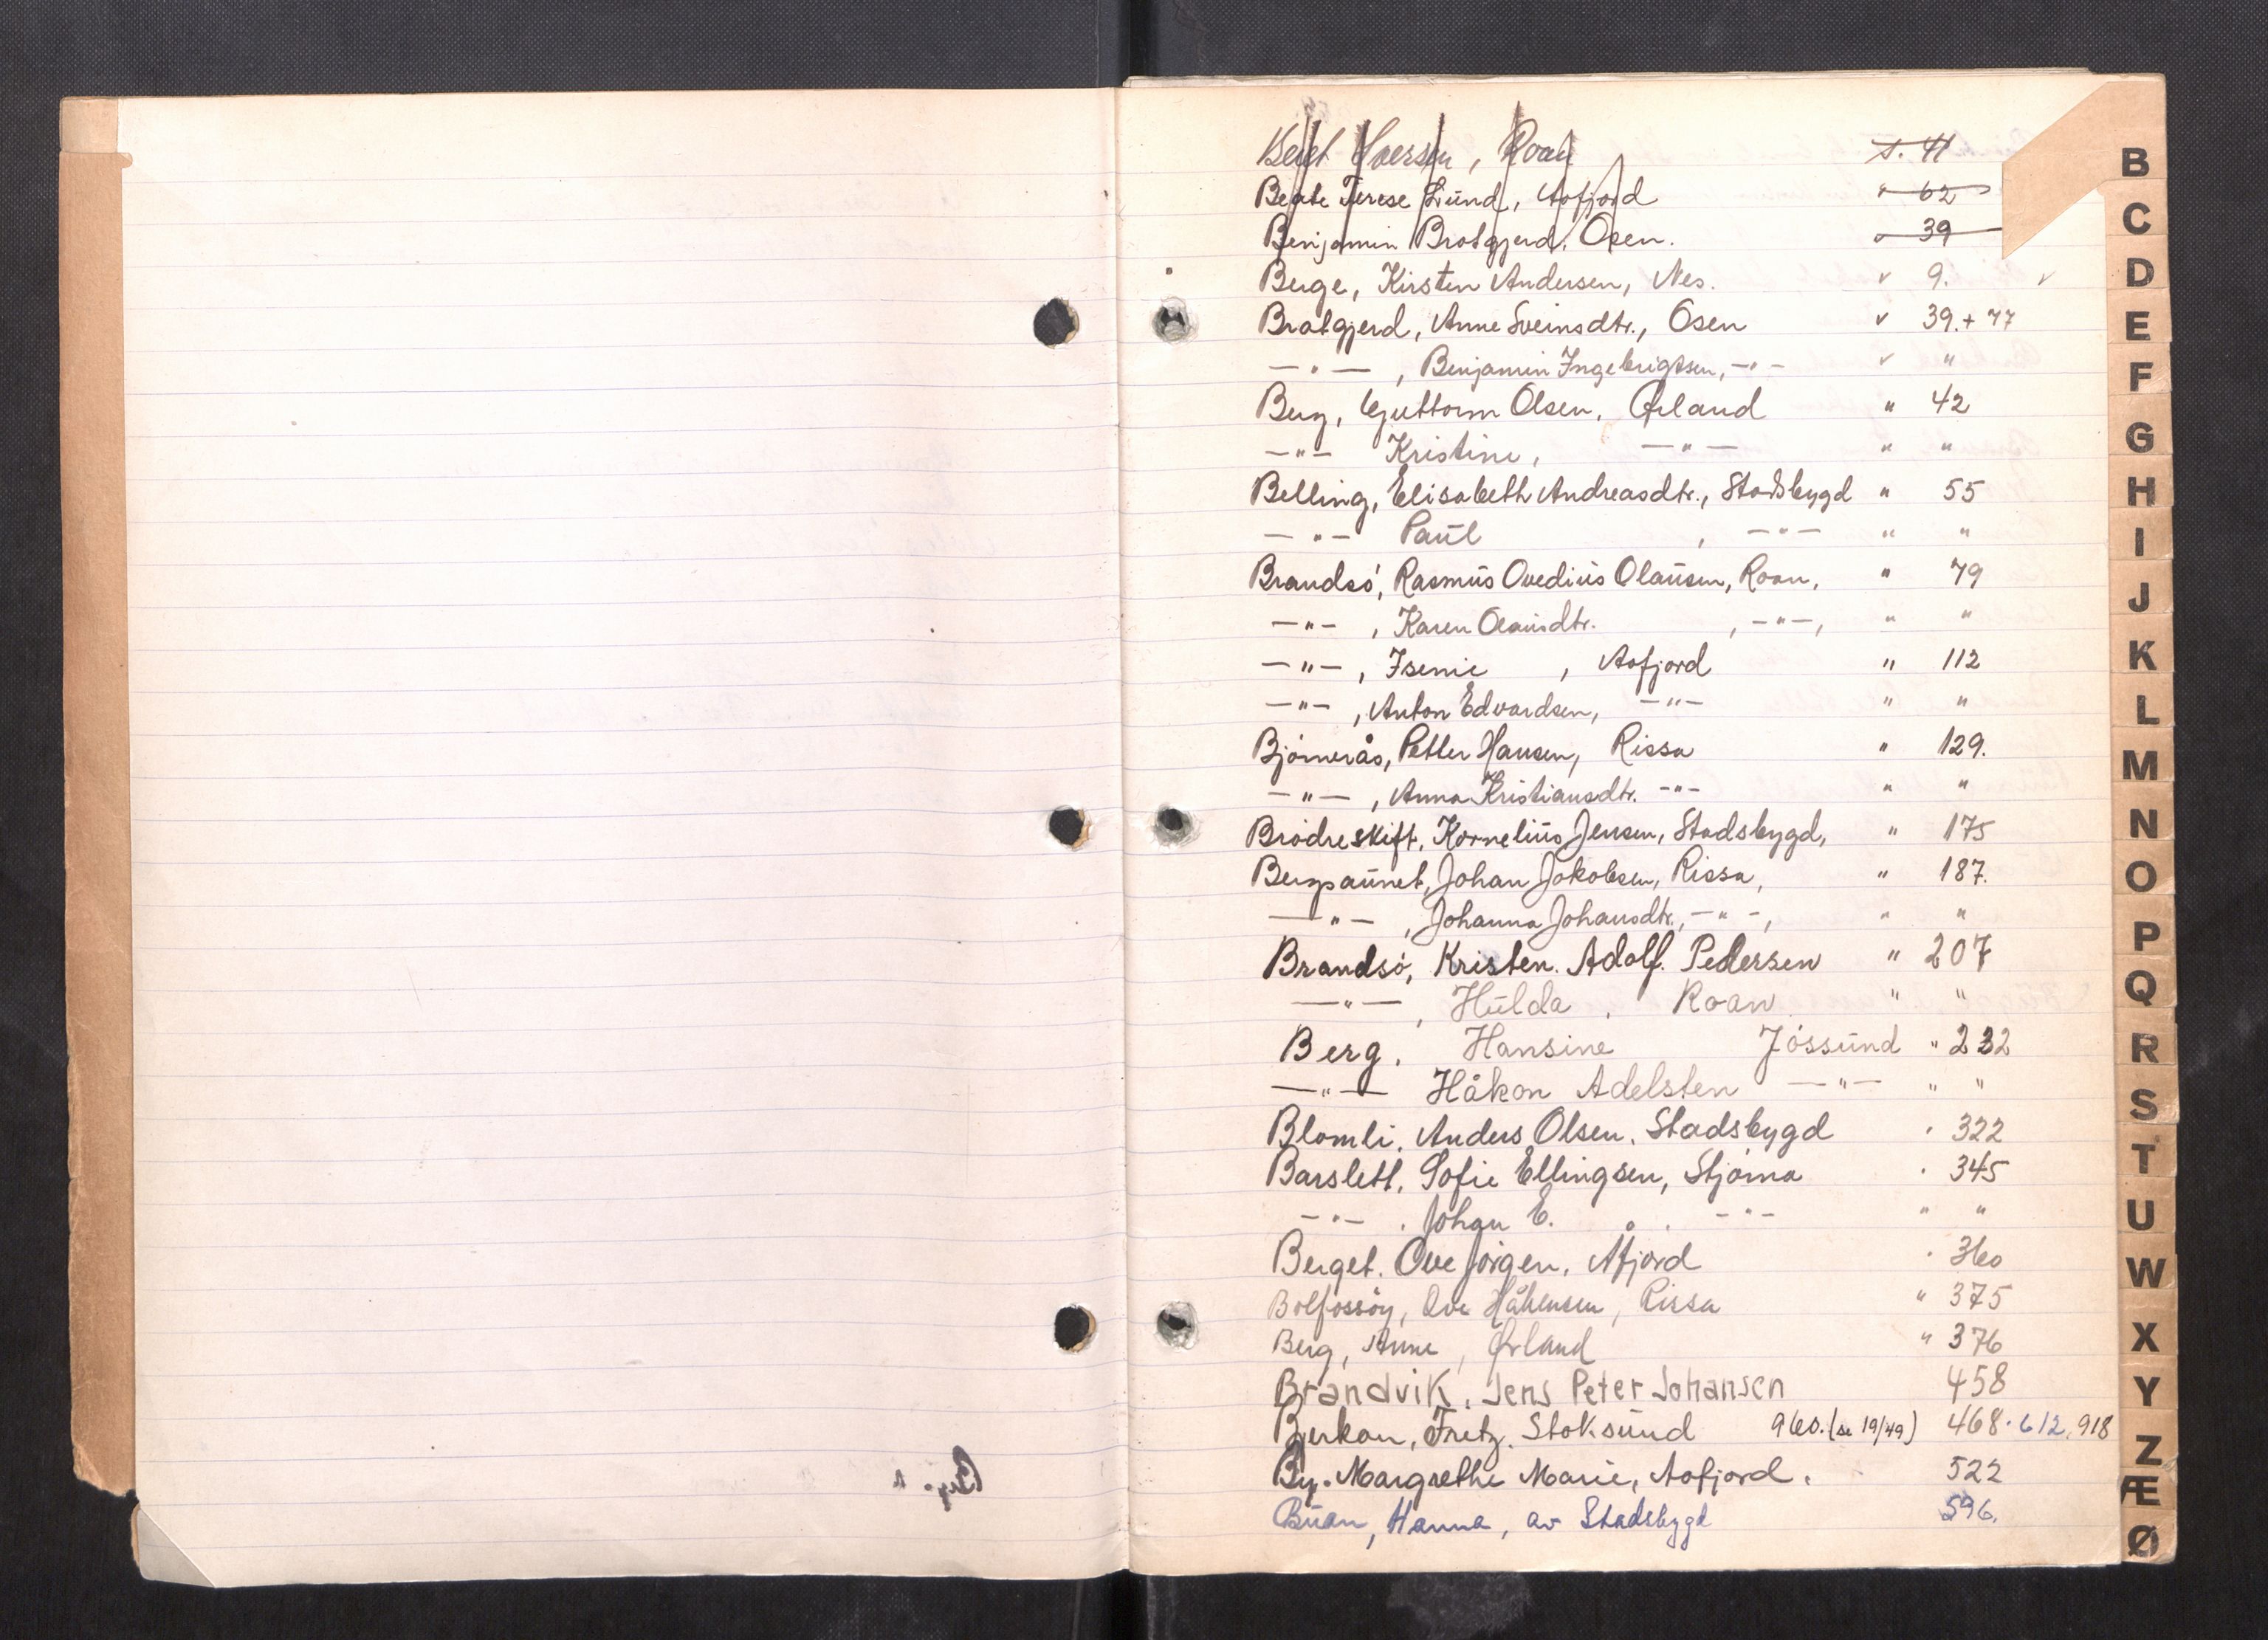 Beret Iversen, Roan s. 41
Beate Terese Lund, Aafjord " 62
Benjamin Bratgjerd, Osen. " 39
Berge, Kirsten Andersen, Nes. v 9. v
Bratgjerd, Anne Sveinsdtr., Osen v 39.+ 77
—"— , Benjamin Ingebrigtsen, —"— v "
Berg, Guttorm Olsen, Ørland " 42
—"— Kristine, —"— " "
Belling, Elisabeth Andreasdtr., Stadsbygd " 55
—"— Paul , —"— " "
Brandsø, Rasmus Ovedius Olausen, Roan, " 79
—"— , Karen Olausdtr. , —"—, " "
—"— , Isenie , Aafjord " 112
—"— , Anton Edvardsen, —"— " "
Bjørnerås, Petter Hansen, Rissa " 129.
—"— , Anna Kristiansdtr. —"— " "
Brødreskift, Kornelius Jensen, Stadsbygd, " 175
Bergsaunet, Johan Jakobsen, Rissa, " 187.
—"— , Johanna Johansdtr., —"—, " "
Brandsø, Kristen. Adolf. Pedersen " 207
—"— , Hulda , Roan " "
Berg. Hansine Jøssund " 232
—"— Håkon Adelsten —"— " "
Blomli, Anders Olsen, Stadsbygd " 322
Barslett, Sofie Ellingsen, Stjørna " 345
—"— , Johan E. —"— " "
Berget. Ove Jørgen, Åfjord " 360
Bolfossøy, Ove , Rissa " 375
Berg, Anne, Ørland " 376
Brandvik, Jens Peter Johansen 458
Bjerkan, Fretz. Stoksund 960. (se 19/49) 468. 612, 918
By. Margrethe Marie, Aafjord. 522
Buan, Hanna, av Stadsbygd 596.
B
C
D
E
F
G
H
I
J
K
L
M
N
O
P
Q
R
S
T
U
W
X
Y
Z
Æ
Ø